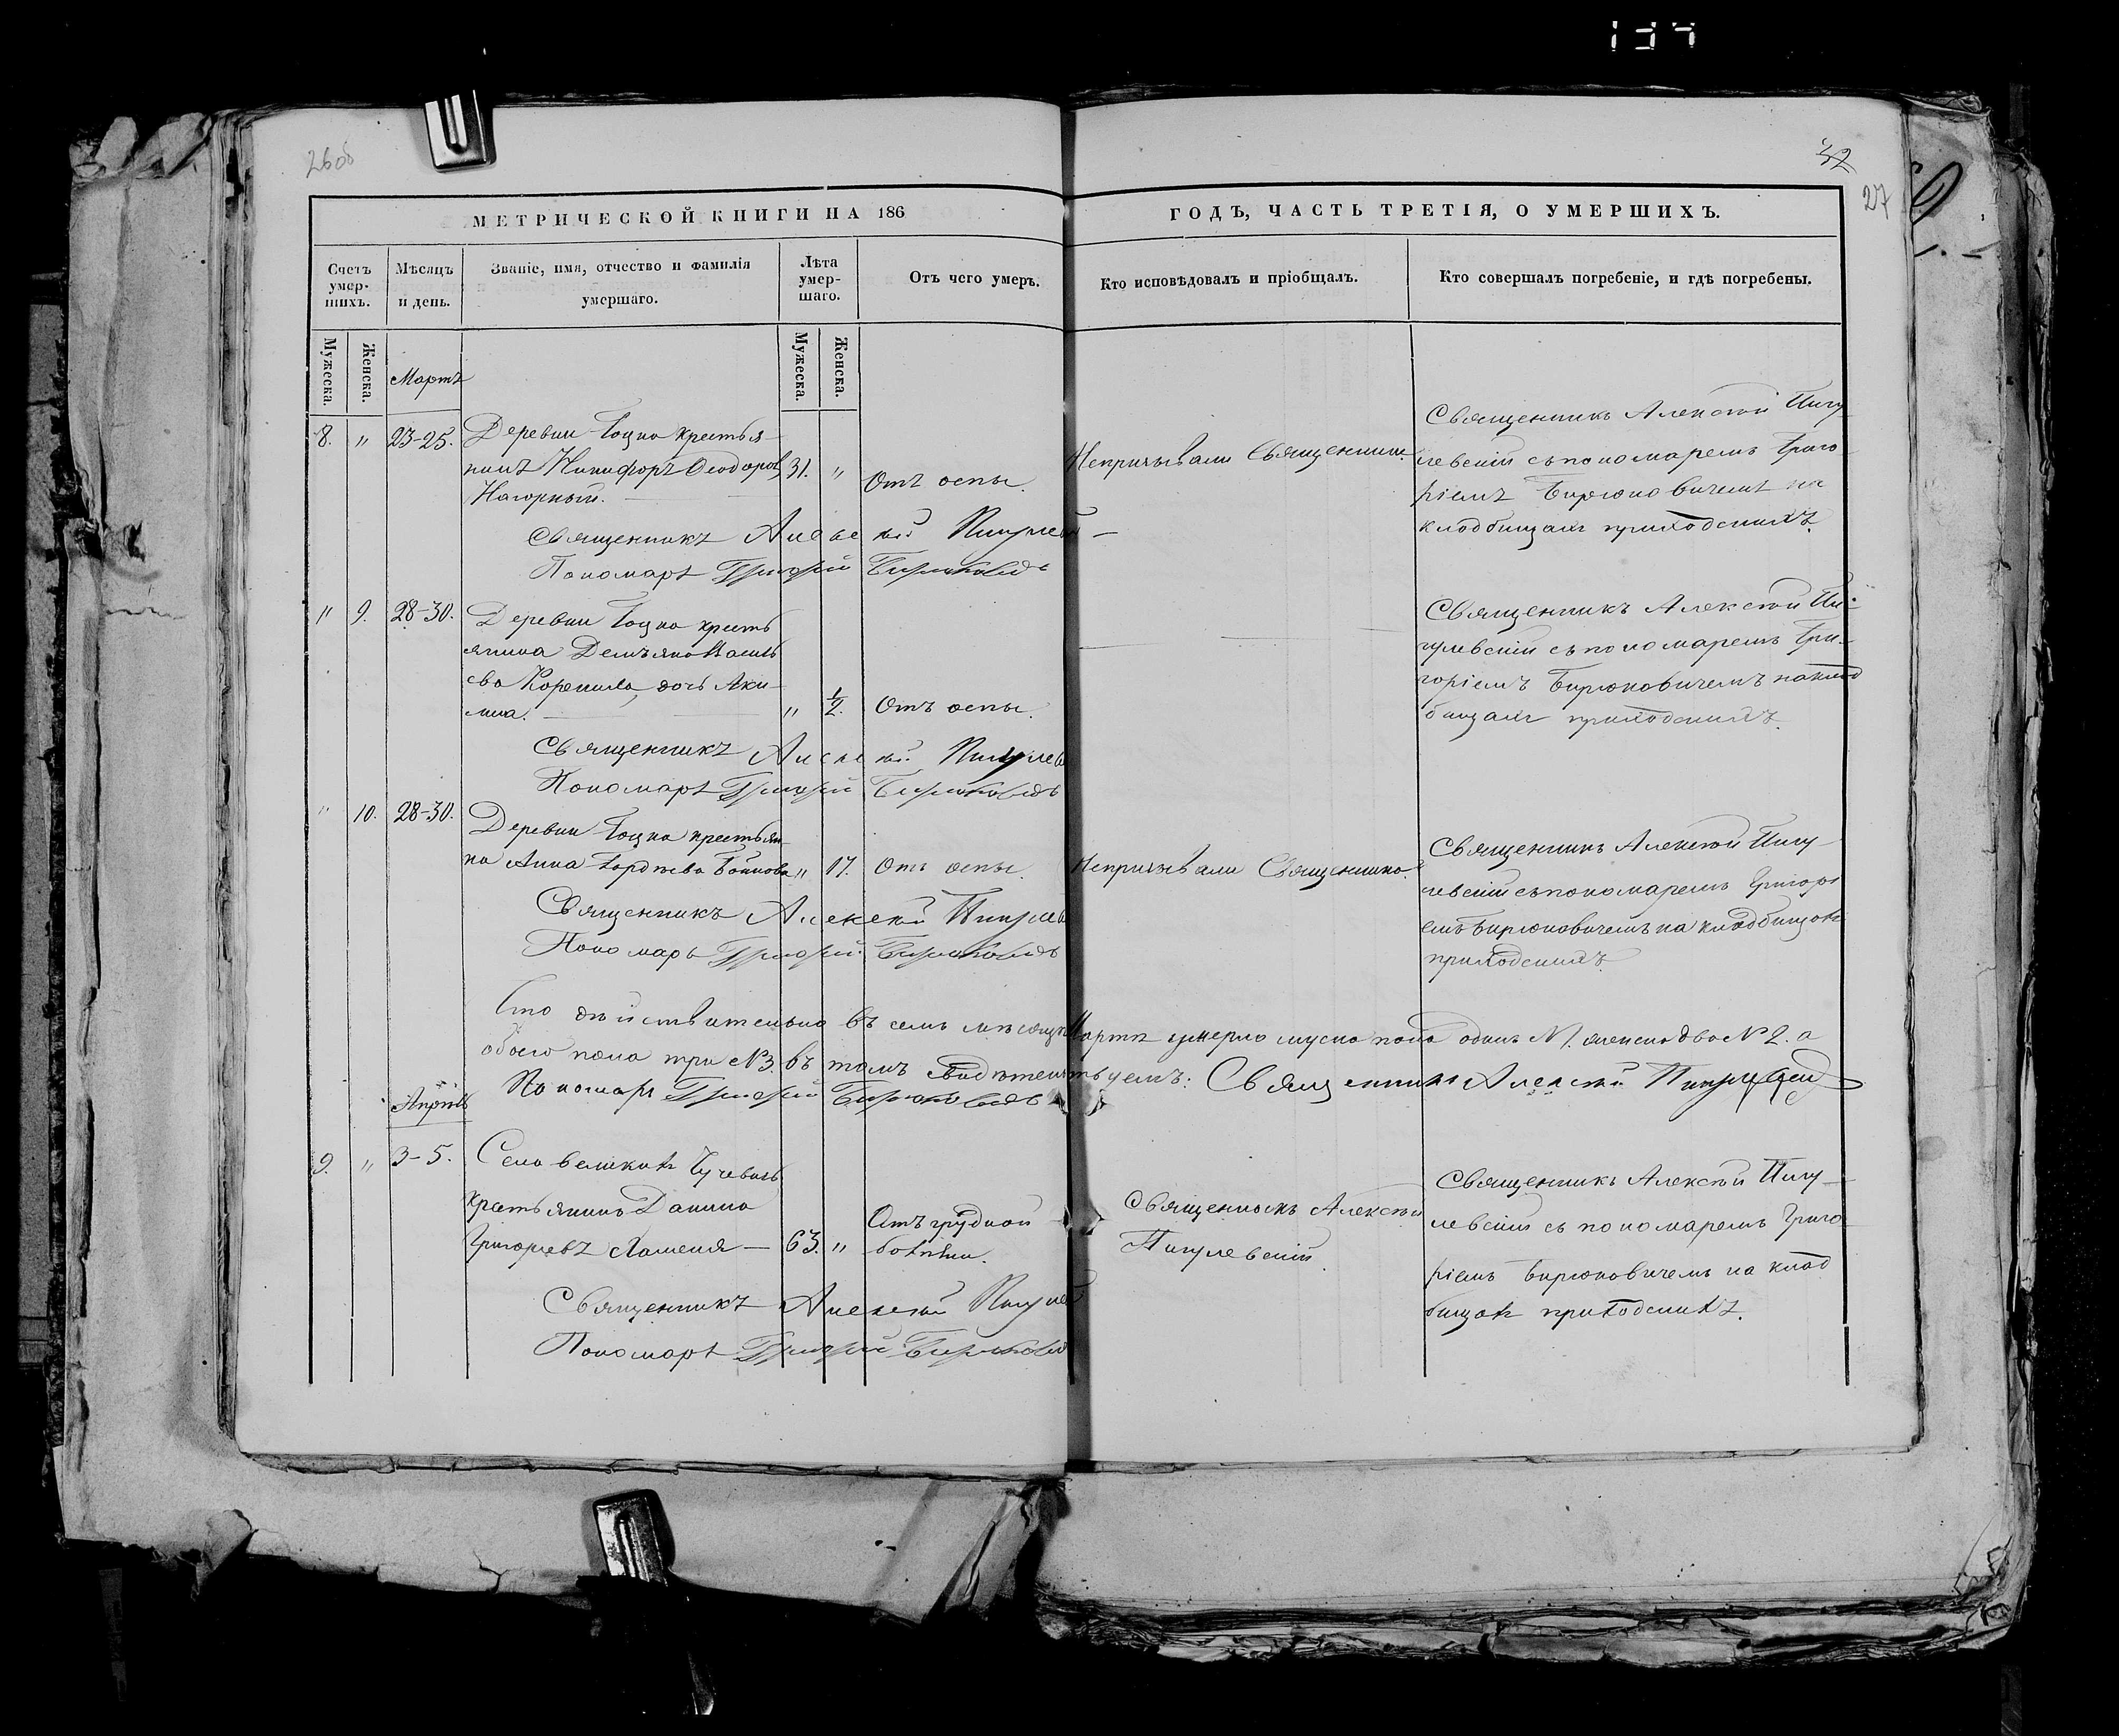 137
26об
32
27
МЕТРИЧЕСКОЙ КНИГИ НА 186
ГОДЪ, ЧАСТЬ ТРЕТІЯ, О УМЕРШИХЪ.
Счетъ умер-
шихъ.
Мѣсяцъ
и день.
Званіе, имя, отчество и фамилія
умершаго.
Лѣта
умер-
шаго.
Отъ чего умеръ.
Кто исповѣдовалъ и пріобщалъ.
Кто совершалъ погребеніе, и гдѣ погребены.
Мужеска.
Женска.
Мартъ
Мужеска.
Женска.
8. " 23-25. Деревни Гоцка крестья-
нинъ Никифоръ Ѳеодоровъ 31. "
Нагорный.
Отъ оспы.
Непризывали Священника.
Священникъ Алексѣй Пигу-
левскій съ пономаремъ Григо-
ріемъ Бирюковичемъ на
кладбищахъ приходскихъ.
Священникъ Алексѣй Пигулев
Пономарь Григорій Бирюковичъ
" 9. 28-30. Деревни Гоцка кресть
янина Демьяна Василь
ева Корпила, дочь Аки-
лина. " 1/2. Отъ оспы.
Священникъ Алексѣй Пи-
гулевскій съ пономаремъ Гри-
горіемъ Бирюковичемъ на клад
бищахъ приходскихъ.
Священникъ Алексѣй Пигулев
Пономарь Григорій Бирюковичъ
" 10. 28-30. Деревни Гоцка крестьян-
ка Анна Гордѣева Бойкова " 17. Отъ оспы.
Непризывали Священника.
Священникъ Алексѣй Пигу-
левскій съ пономаремъ Григорі
емъ Бирюковичемъ на кладбищахъ
приходскихъ.
Священникъ Алексѣй Пигулев
Пономарь Григорій Бирюковичъ
Что дѣйствительно въ семъ мѣсяцѣ Мартѣ умерло муска пола одинъ №1. женска два №2. а
обоего пола три №3. въ томъ свидѣтельствуемъ: Священникъ Алексѣй Пигулевскій
Пономарь Григорій Бирюковичъ
Апрѣль
9. " 3-5. Села великихъ Чучевичъ
крестьянинъ Данила
Григорьевъ — 63. "
Отъ грудной
болѣзни.
Священникъ Алексѣй
Пигулевскій.
Священникъ Алексѣй Пигу-
левскій съ пономаремъ Григо-
ріемъ Бирюковичемъ на клад
бищахъ приходскихъ.
Священникъ Алексѣй Пигулев
Пономарь Григорій Бирюкович